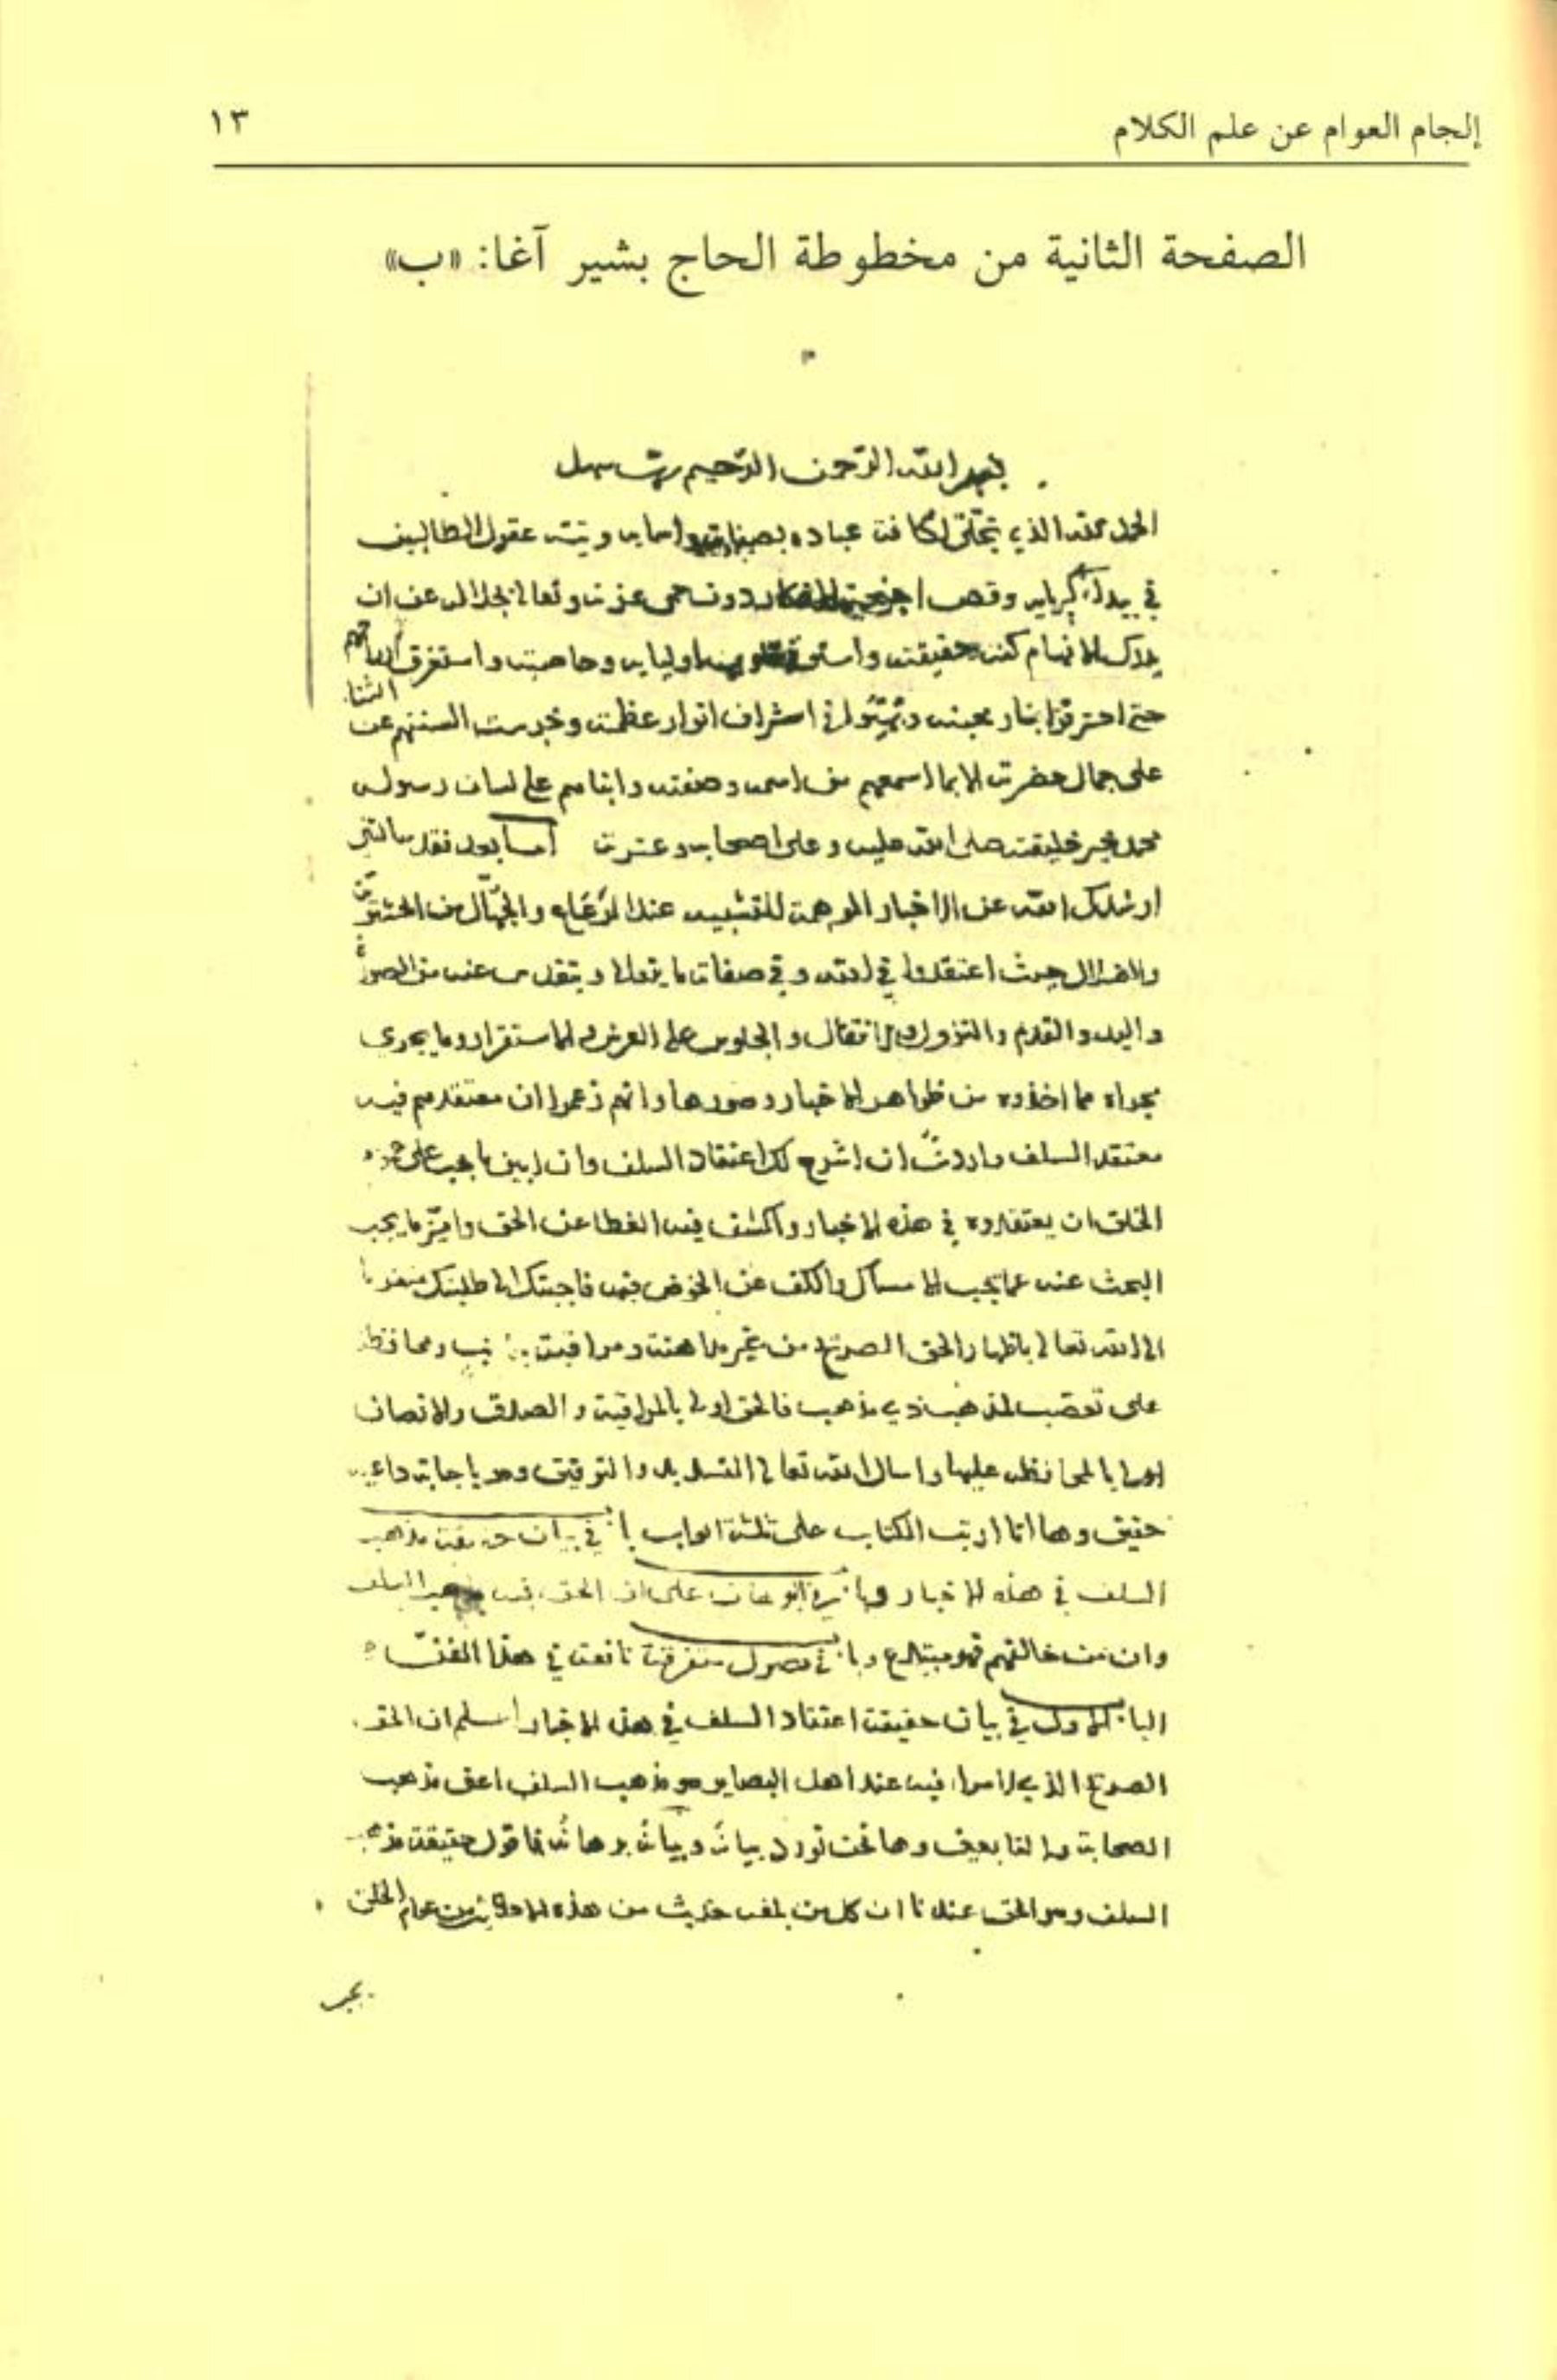 إلجام العوام عن علم الكلام
١٣
الصفحة الثانية من مخطوطة الحاج بشير آغا: «ب»
بسم الله الرّحمن الرّحيم ربّ سهل
الحمد لله الذي تجلّى لكافة عباده بصفاته واسمايه وتيّه عقول الطالبين
في بيدا كبريايه وقص اجنحة الافكار دون حمى عزته وتعالى بجلاله عن ان
يدرك الافهام كنه حقيقته واستوفى قلوب اوليايه وخاصته واستغرق ارواحهم
حتى احترقوا بنار محبته وتحيّروا في اشراق انوار عظمته وخرست السنتهم عن الثنا
على جمال حضرته الا بما اسمعهم من اسمه وصفته وانباهم على لسان رسوله
محمد خير خليقته صلى الله عليه وعلى اصحابه وعترته اما بعد فقد سالتني
ارشدك الله عن الاخبار الموهمة للتشبيه عند الرّعاع والجهّال من الحشويّة
والضلال حيث اعتقدوا في الله وفي صفاته ما يتعالى ويتقدس عنه من الصورة
واليد والقدم والنزول والانتقال والجلوس على العرش والاستقرار وما يجرى
مجراه مما اخذوه من ظواهر الاخبار وصورها وانهم زعموا ان معتقدهم فيه
معتقد السلف واردتَ ان اشرح لك اعتقاد السلف وان ابين ما يجب على عموم
الخلق ان يعتقدوه في هذه الاخبار واكشف فيه الغطا عن الحق واميّز ما يجب
البحث عنه عما يجب الامساك والكف عن الخوض فيه فاجبتك الى طلبتك متقربا
الى الله تعالى باظهار الحق الصريح من غير مداهنة ومراقبة جانب ومحافظة
على تعصّب لمذهب ذي مذهب فالحق اولى بالمراقبة والصدق والانصاف
اولى بالمحافظه عليها واسال الله تعالى التسديد والتوفيق وهو باجابة داعيه
حقيق وها انا ارتب الكتاب على ثلثة ابواب با في بيان حقيقة مذهب
السلف في هذه الاخبار وبا في البرهان على ان الحق فيه مذهب السلف
وان من خالفهم فهو مبتدع وبا في فصول متفرقة نافعة في هذا الفنّ
البا الاول في بيان حقيقة اعتقاد السلف في هذه الاخبار اعلم ان الحق
الصريح الذي لا مرا فيه عند اهل البصاير هو مذهب السلف اعنى مذهب
الصحابة والتابعين وها نحن نورد بيانه وبيان برهانه فاقول حقيقة مذهب
السلف وهو الحق عندنا ان كل من بلغه حديث من هذه الاحاديث من عوام الخلق
يجب